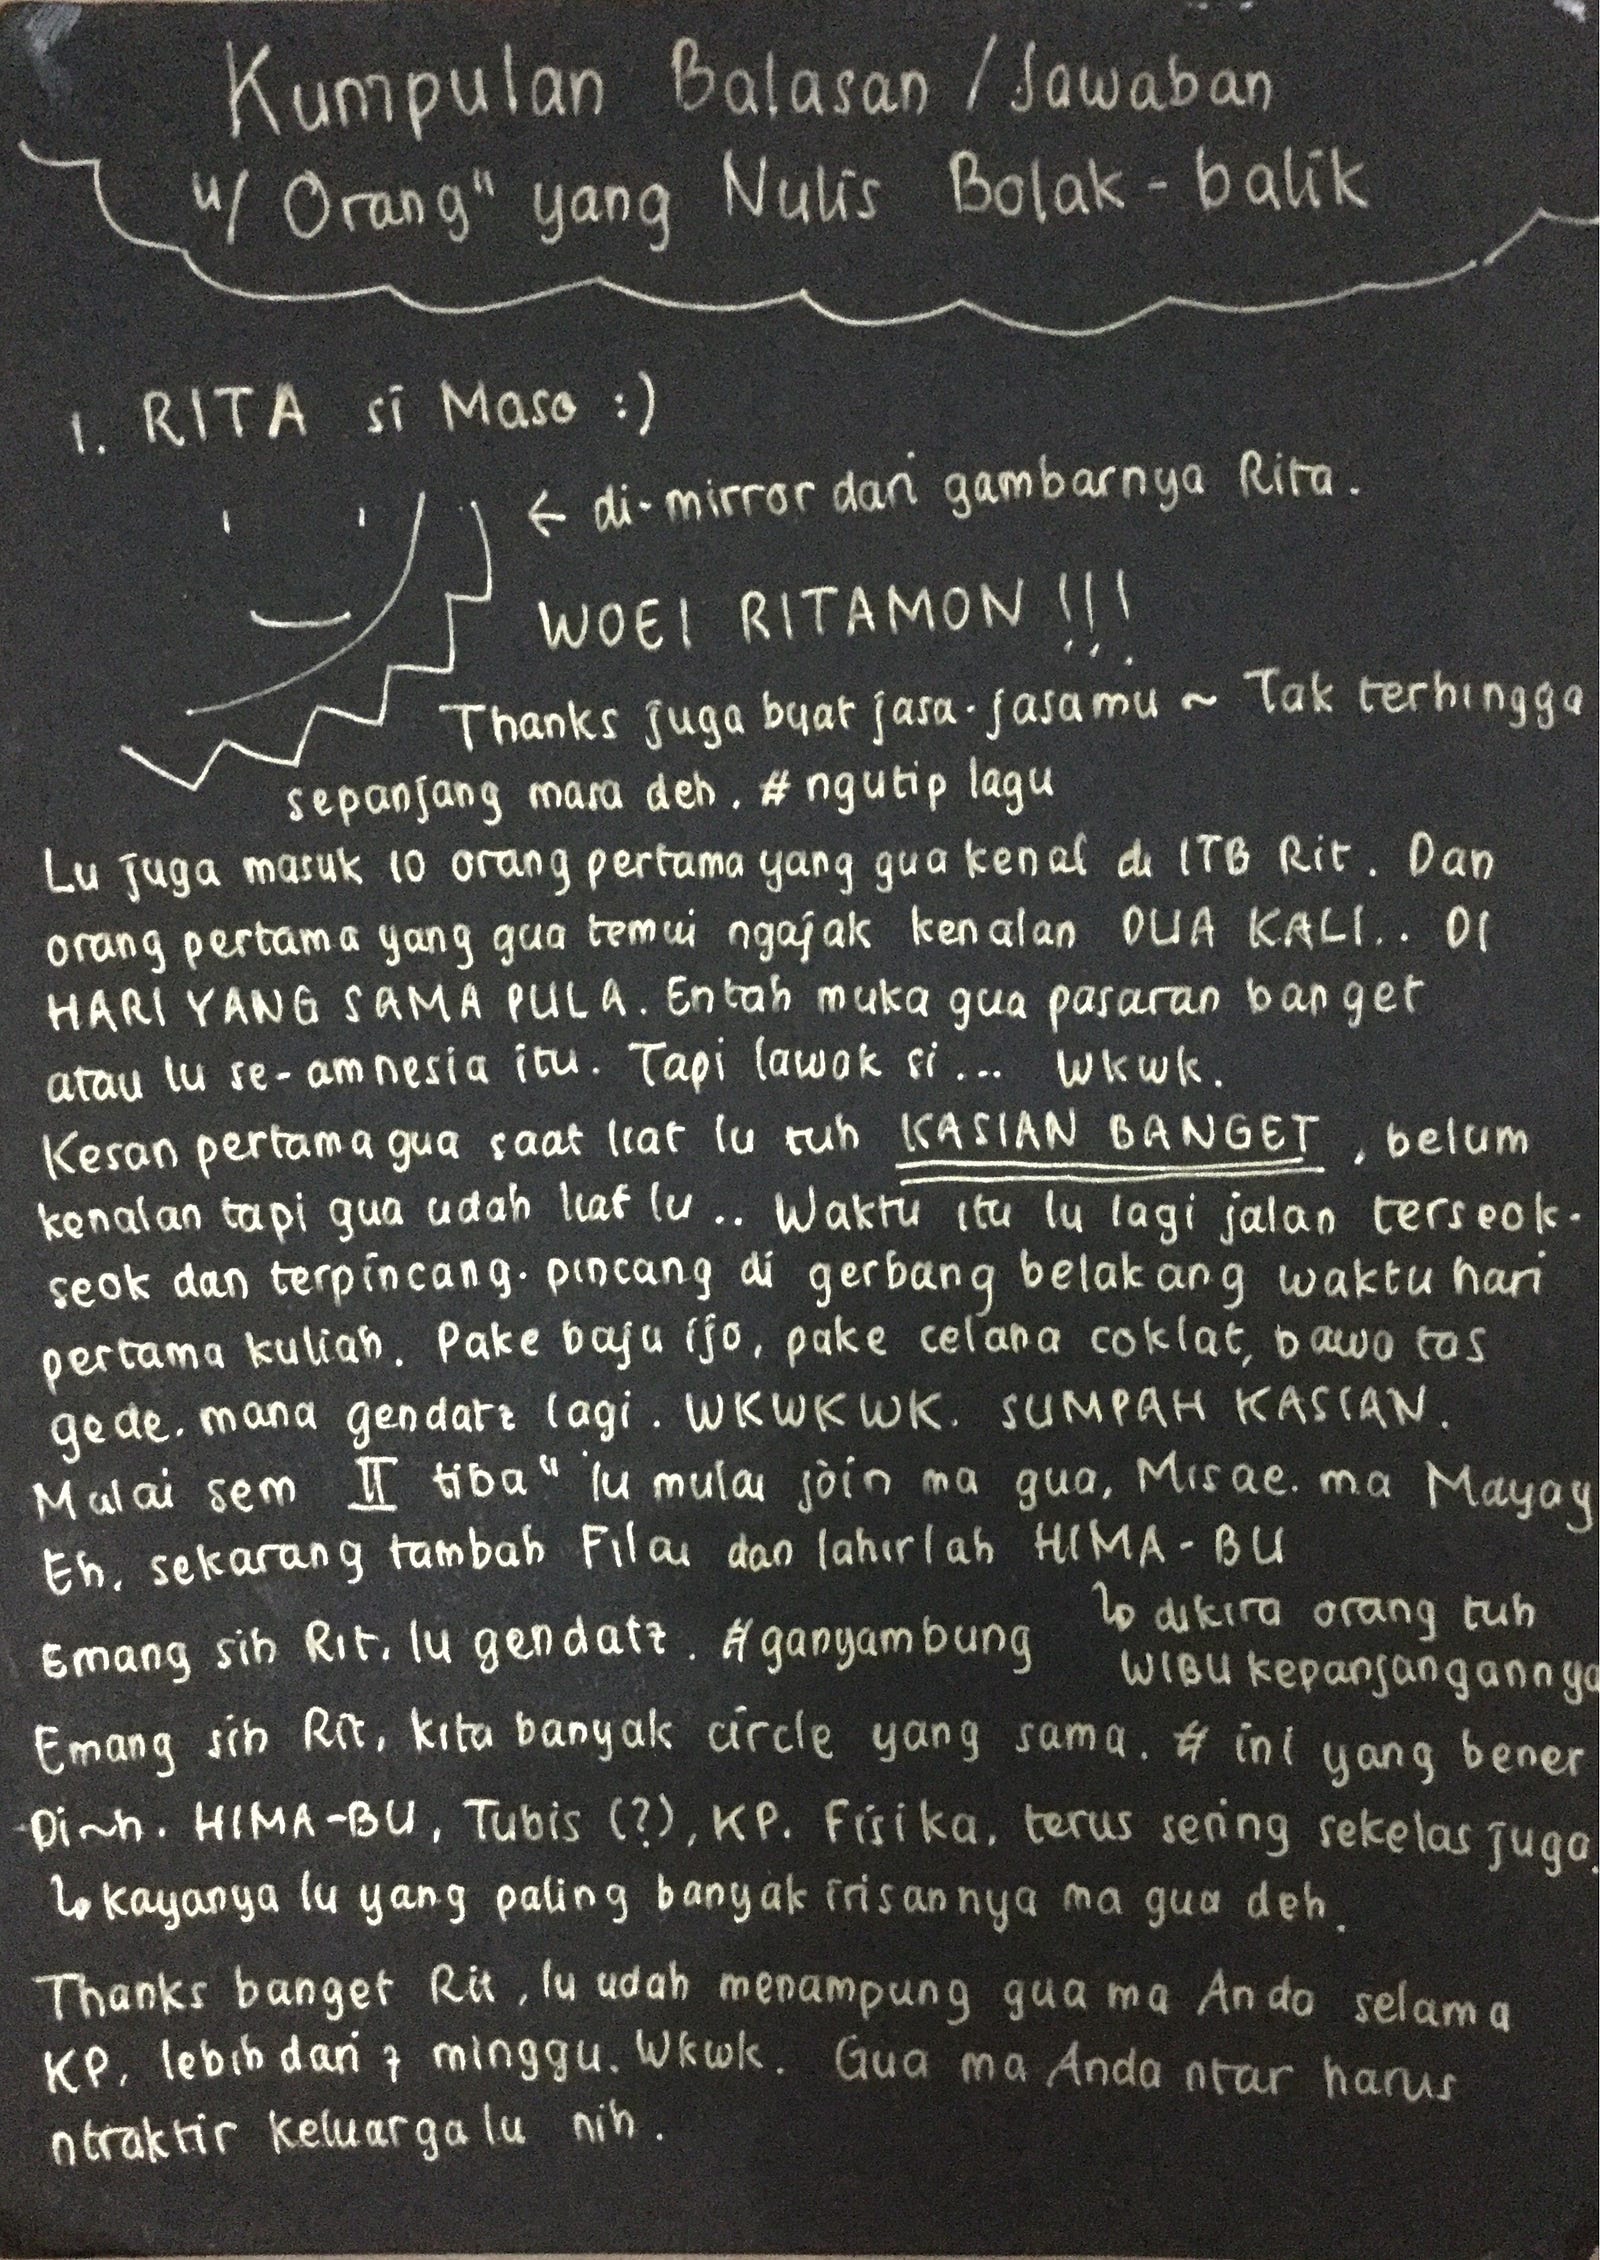 Kumpulan Balasan / Jawaban
u/ Orang" yang Nulis Bolak-balik
1. RITA si Maso :)
← di-mirror dari gambarnya Rita.
WOEI RITAMON !!!
Thanks juga buat jasa-jasamu ~ Tak terhingga
sepanjang masa deh. #ngutip lagu
Lu juga masuk 10 orang pertama yang gua kenal di ITB Rit. Dan
orang pertama yang gua temui ngajak kenalan DUA KALI.. DI
HARI YANG SAMA PULA. Entah muka gua pasaran banget
atau lu se-amnesia itu. Tapi lawak si... wkwk.
Kesan pertama gua saat liat lu tuh KASIAN BANGET, belum
kenalan tapi gua udah liat lu.. Waktu itu lu lagi jalan terseok-
seok dan terpincang-pincang di gerbang belakang waktu hari
pertama kuliah. Pake baju ijo, pake celana coklat, bawa tas
gede. mana gendatz lagi. WKWKWK. SUMPAH KASIAN.
Mulai sem II tiba" lu mulai join ma gua, Misae. ma Mayay
Eh, sekarang tambah Filai dan lahirlah HIMA-BU
↳ dikira orang tuh
WIBU kepanjangannya
Emang sih Rit, lu gendatz. #ganyambung
Emang sih Rit, kita banyak circle yang sama. # ini yang bener
HIMA-BU, Tubis (?), KP. Fisika, terus sering sekelas juga.
↳ kayanya lu yang paling banyak irisannya ma gua deh.
Thanks banget Rit, lu udah menampung gua ma Anda selama
KP, lebih dari 7 minggu. Wkwk. Gua ma Anda ntar harus
ntraktir keluarga lu nih.